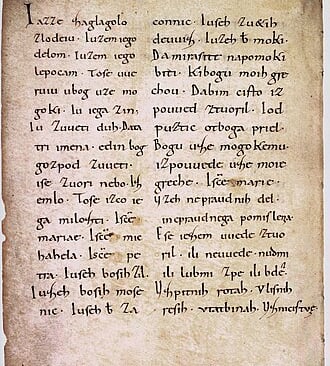 Iazze zaglagolo
zlodeiu. Iuzem iego
delom. Iuzem iego
lepocam. Tose uue
ruiu ubog uze mo
goki. Iu iega zin,
Iu zuueti duh. Data
tri imena. edin bog
gozpod zuueti.
ise zuori nebo. Iz
emlo. Tose izco ie
ga milosti. Iscē
mariae. Iscē mic
hahela. Iscē pe
tra. Iuseh bosih zil.
Iuzeh bosih mose
nic. Iuseh ƀ za
connic. Iuseh zuetih
devuiz. Iuzeh ƀ moki
Da mirasite napomoki
biti. Kibogu moih gre
chou. Dabim cisto iz
povued ztuoril. Iod
puztic otboga priel.
Bogu uze mogokemu.
izpovuede uze moie
greche. Iscē marie.
Vzeh nepraudnih del.
inepraudnega pomislena.
Ese iezem uuede ztuo
ril. ili neuuede. nudmi
ili lubmi zpe ili bdē.
Vzpitnih rotah. Vlisnih
resih. vtatbinah. Vznicistue.